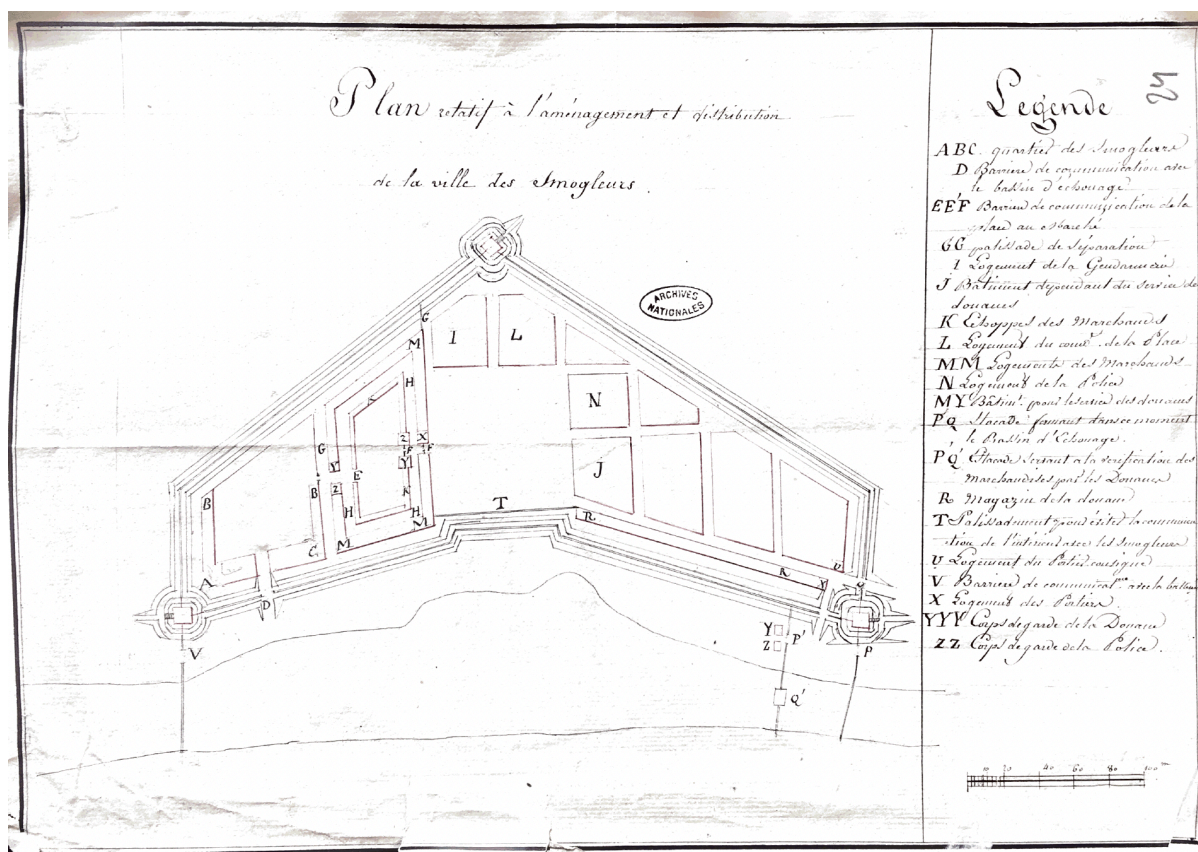 Plan relatif à l'aménagement et distribution
de la ville des Smogleurs.
ARCHIVES
NATIONALES
G
M
I
L
H
N
2
X
F
F
G
Y
Y
E
J
B
B
2
H
K
H
T
M
R
C
M
A
K
U
Y
D
Y
Z
P'
P
V
Q'
Légende
24
ABC. quartier des Smogleurs
D Barriere de communication avec
le bassin d'échouage
EE'F Barriere de communication de la
place au Marché
GG palissade de séparation
I Logement de la Gendarmerie
J Bâtiment dépendant du service de
douanes
K Echoppes des Marchands
L Logement du comt. de la Place
MM Logements des Marchands
N Logement de la Police
MY Bâtimt. pour le service des douanes
PQ Stacade formant dans ce moment
le Bassin d'Echouage.
P'Q' Estacade servant à la vérification des
Marchandises par les Douanes
R Magazin de la douane
T Palissadement pour éviter la communica
tion de l'intérieur avec les Smogleurs
U Logement du Portier consigne
V Barriere de communicat.on avec la
X Logement des Portiers.
YYY Corps de garde de la Douane
ZZ Corps de garde de la Police.
10 20 40 60 80 100 m